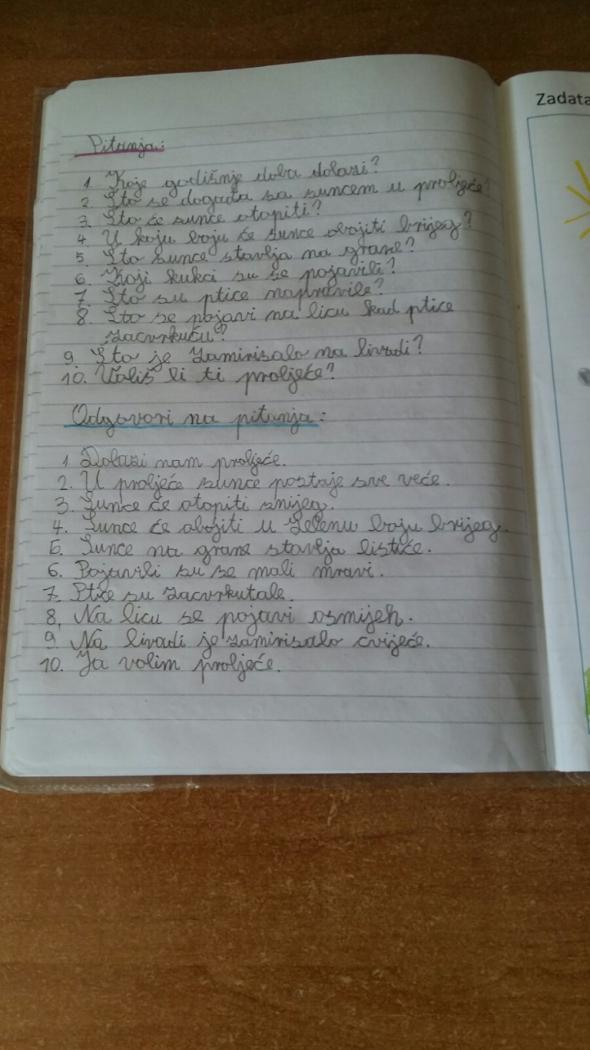 Pitanja:
1. Koje godišnje doba dolazi?
2. Što se događa sa suncem u proljeće?
3. Što će sunce otopiti?
4. U koju boju će sunce obojiti brijeg?
5. Što sunce stavlja na grane?
6. Koji kukci su se pojavili?
7. Što su ptice napravile?
8. Što se pojavi na licu kad ptice
zacvrkuću?
9. Što je zamirisalo na livadi?
10. Voliš li ti proljeće?
Odgovori na pitanja:
1. Dolazi nam proljeće.
2. U proljeće sunce postaje sve veće.
3. Sunce će otopiti snijeg.
4. Sunce će obojiti u zelenu boju brijeg.
5. Sunce na grane stavlja listiće.
6. Pojavili su se mali mravi.
7. Ptice su zacvrkutale.
8. Na licu se pojavi osmijeh.
9. Na livadi je zamirisalo cvijeće.
10. Ja volim proljeće.
Zadata